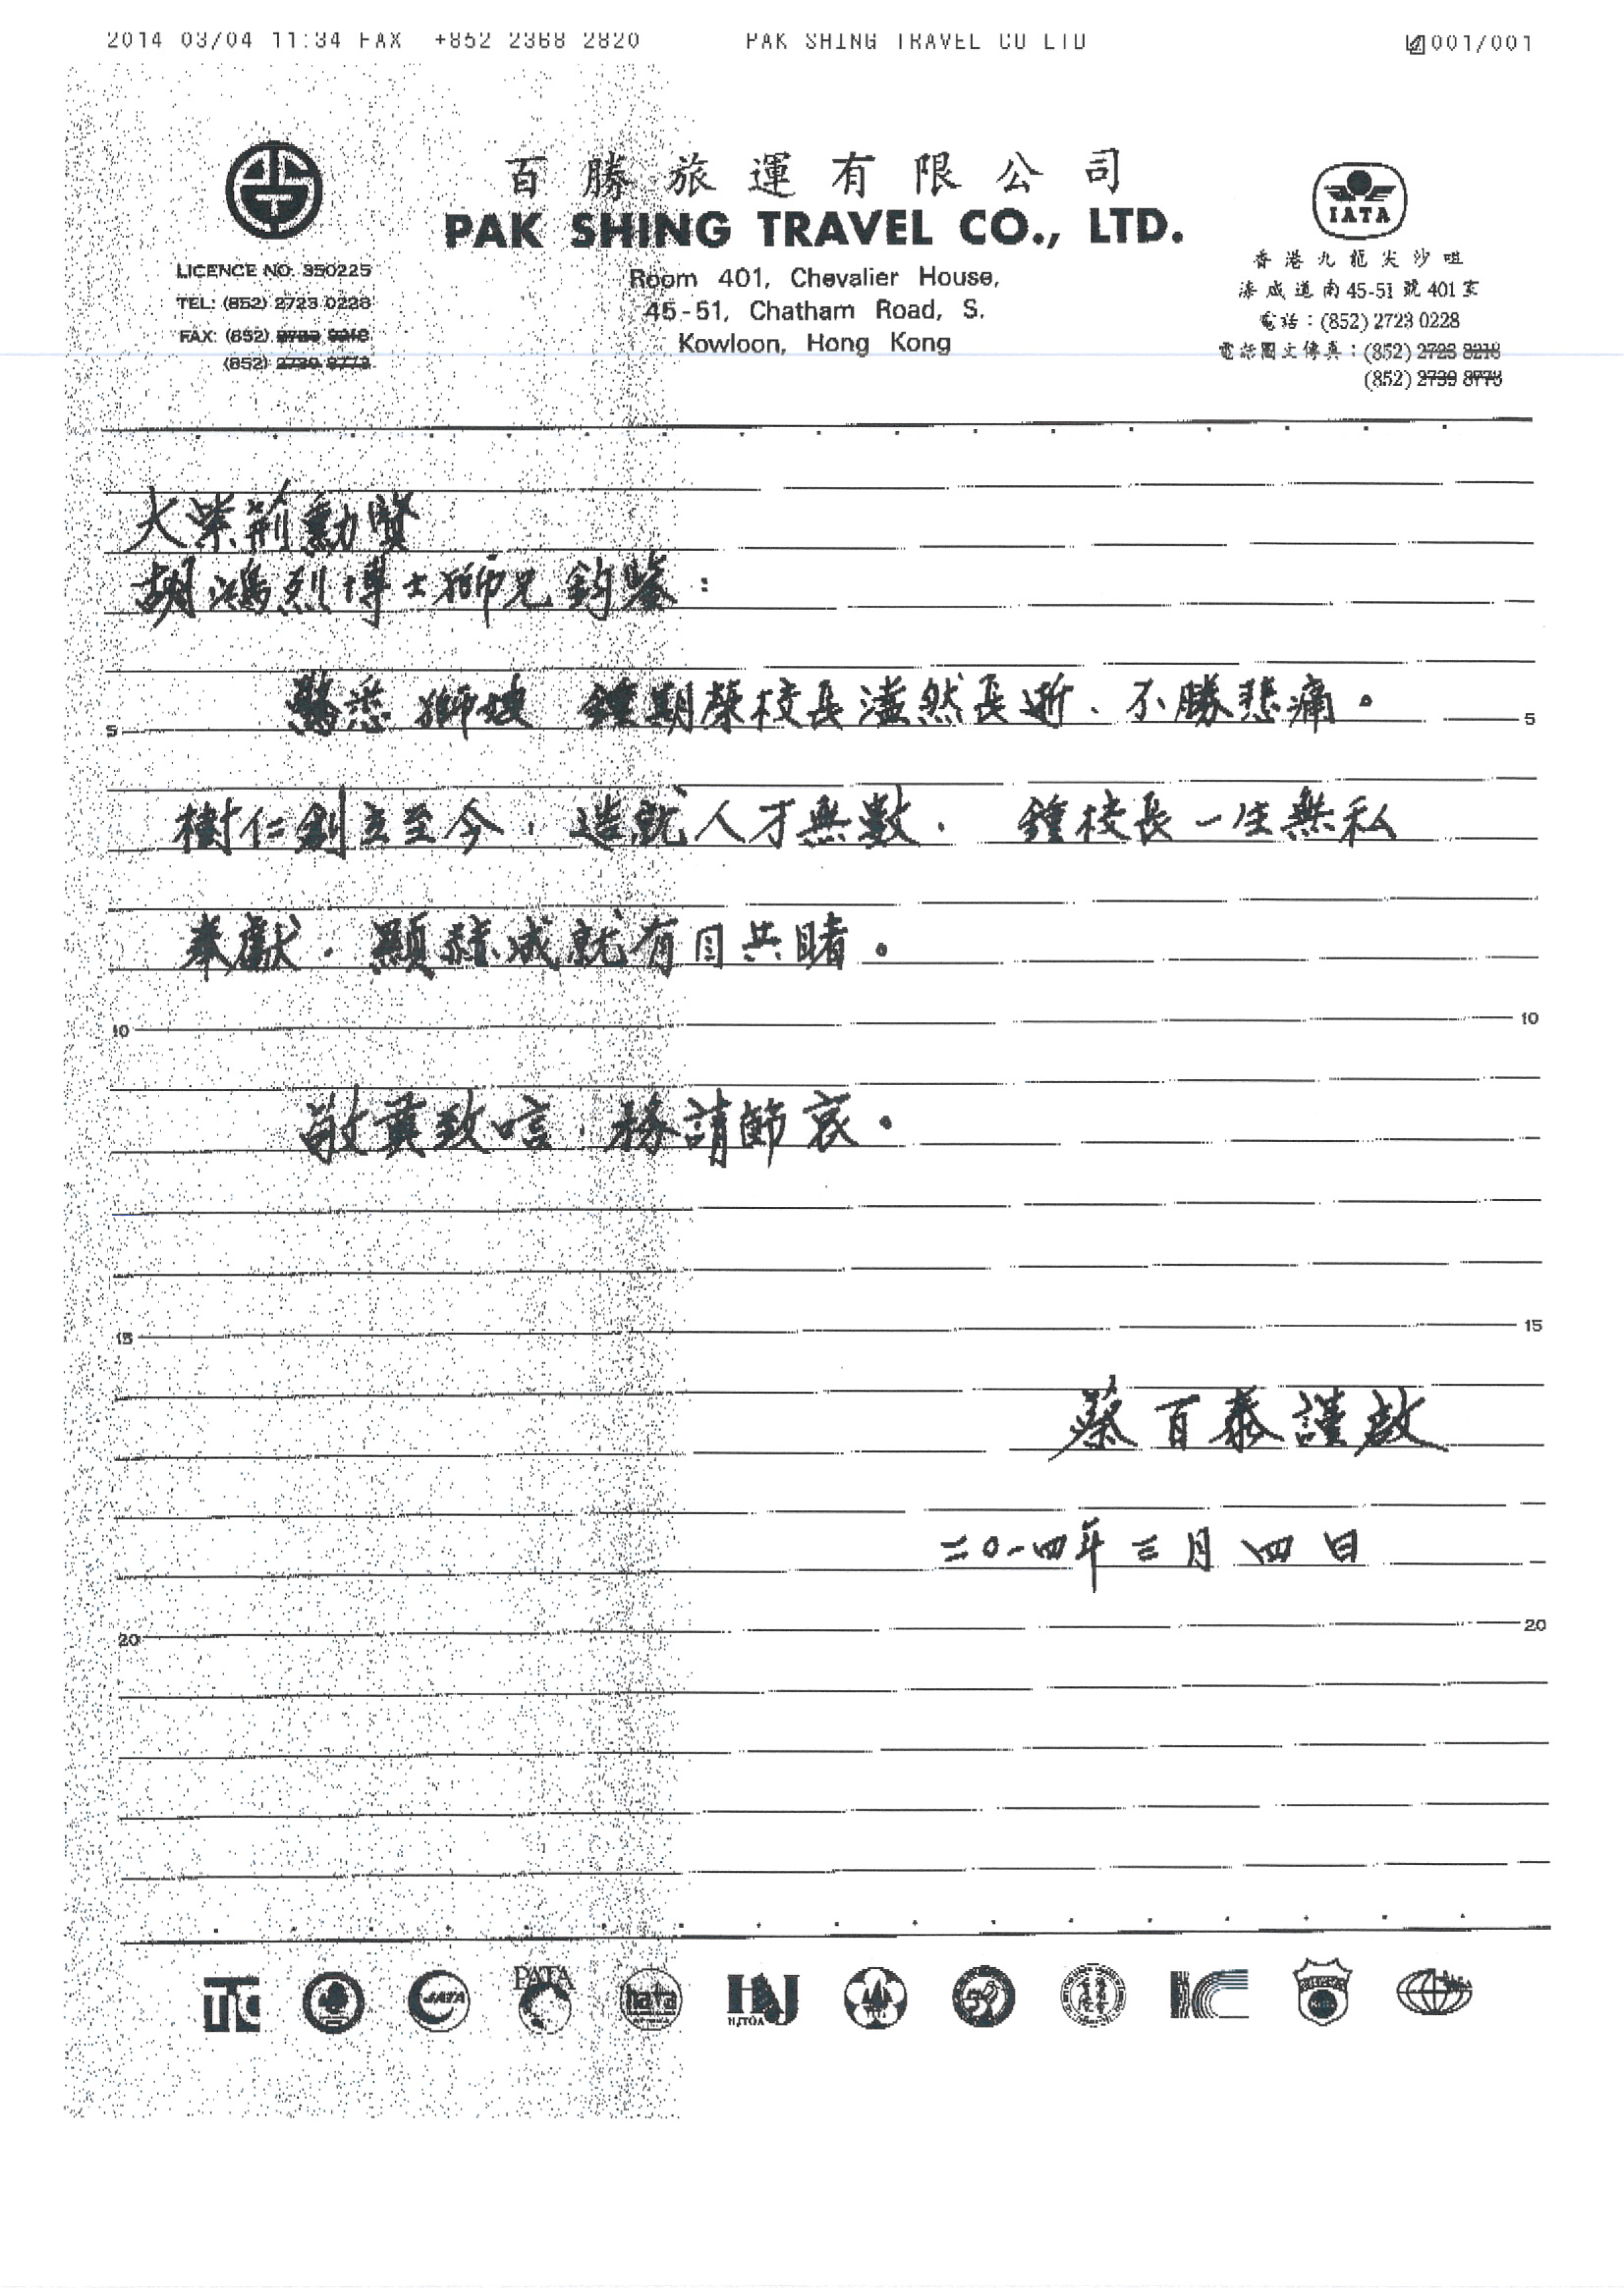 2014 03/04 11:34 FAX +852 2368 2820 PAK SHING TRAVEL CO LTD 001/001
百勝旅運有限公司
PAK SHING TRAVEL CO., LTD.
Room 401, Chevalier House,
45-51, Chatham Road, S.
Kowloon, Hong Kong
LICENCE NO. 350225
TEL: (852) 2723 0228
FAX: (852) 2723 9218
(852) 2739 8773
IATA
香港九龍尖沙咀
漆咸道南45-51號401室
電話：(852) 2723 0228
電話圖文傳真：(852) 2723 9218
(852) 2739 8773
大紫荊勳賢
胡鴻烈博士獅兄鈞鑒：
驚悉 獅嫂 鍾期榮校長溘然長逝、不勝悲痛。
5 5
樹仁創立至今，造就人才無數． 鍾校長一生無私
奉獻．顯赫成就有目共睹。
10 10
敬冀致唁．務請節哀。
15 15
蔡百泰謹啟
二〇一四年三月四日
20 20
TIC
JATA
PATA
hata
HJTOA